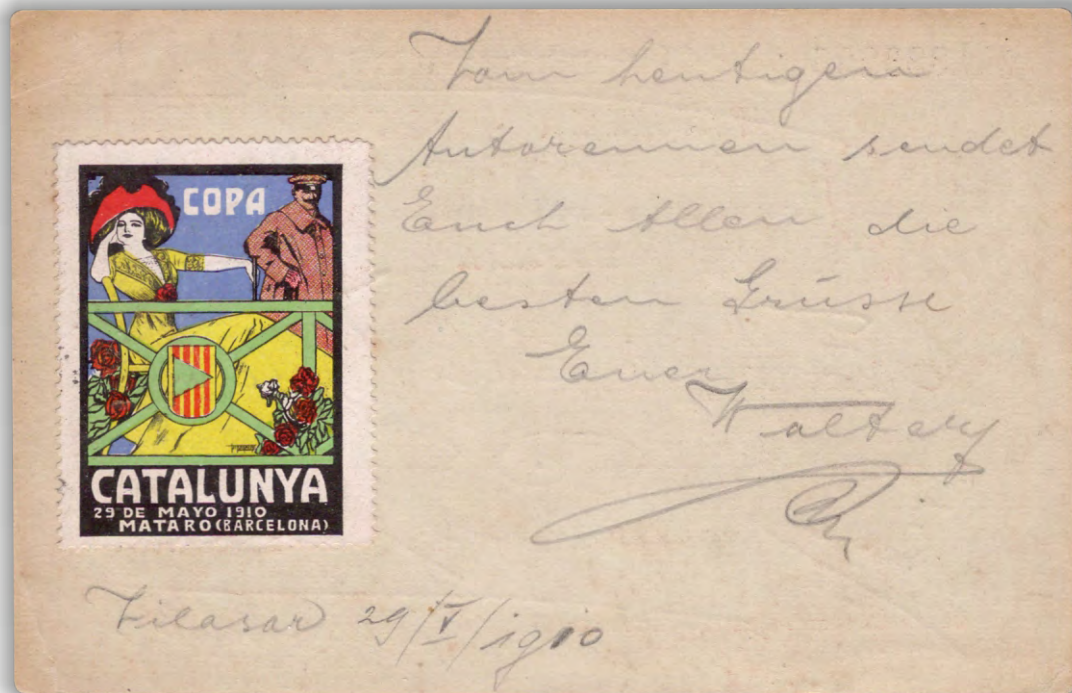 Vom heutigen
Autorennen sendet
Euch Allen die
besten Grüsse
Euer
Walter
COPA
CATALUNYA
29 DE MAYO 1910
MATARO (BARCELONA)
Vilasar 29/V/1910